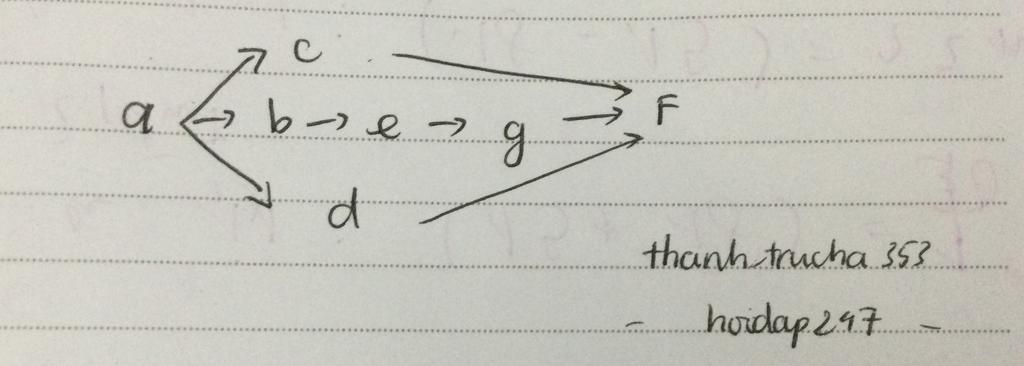 c
a → b → e → g → F
d
thanhtrucha 353
- hoidap247 -